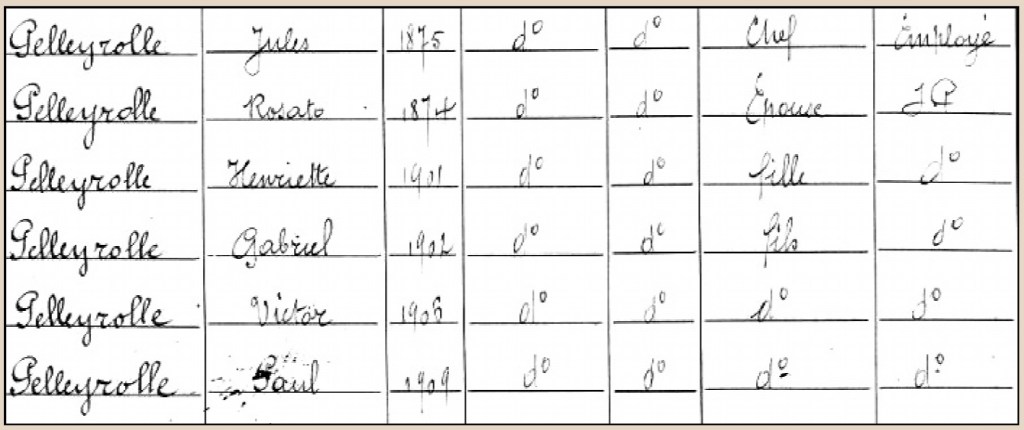 Pelleyrolle Jules 1875 d° d° Chef Employé
Pelleyrolle Rosato 1874 d° d° Épouse
Pelleyrolle Henriette 1901 d° d° fille d°
Pelleyrolle Gabriel 1902 d° d° fils d°
Pelleyrolle Victor 1906 d° d° d° d°
Pelleyrolle Paul 1909 d° d° d° d°